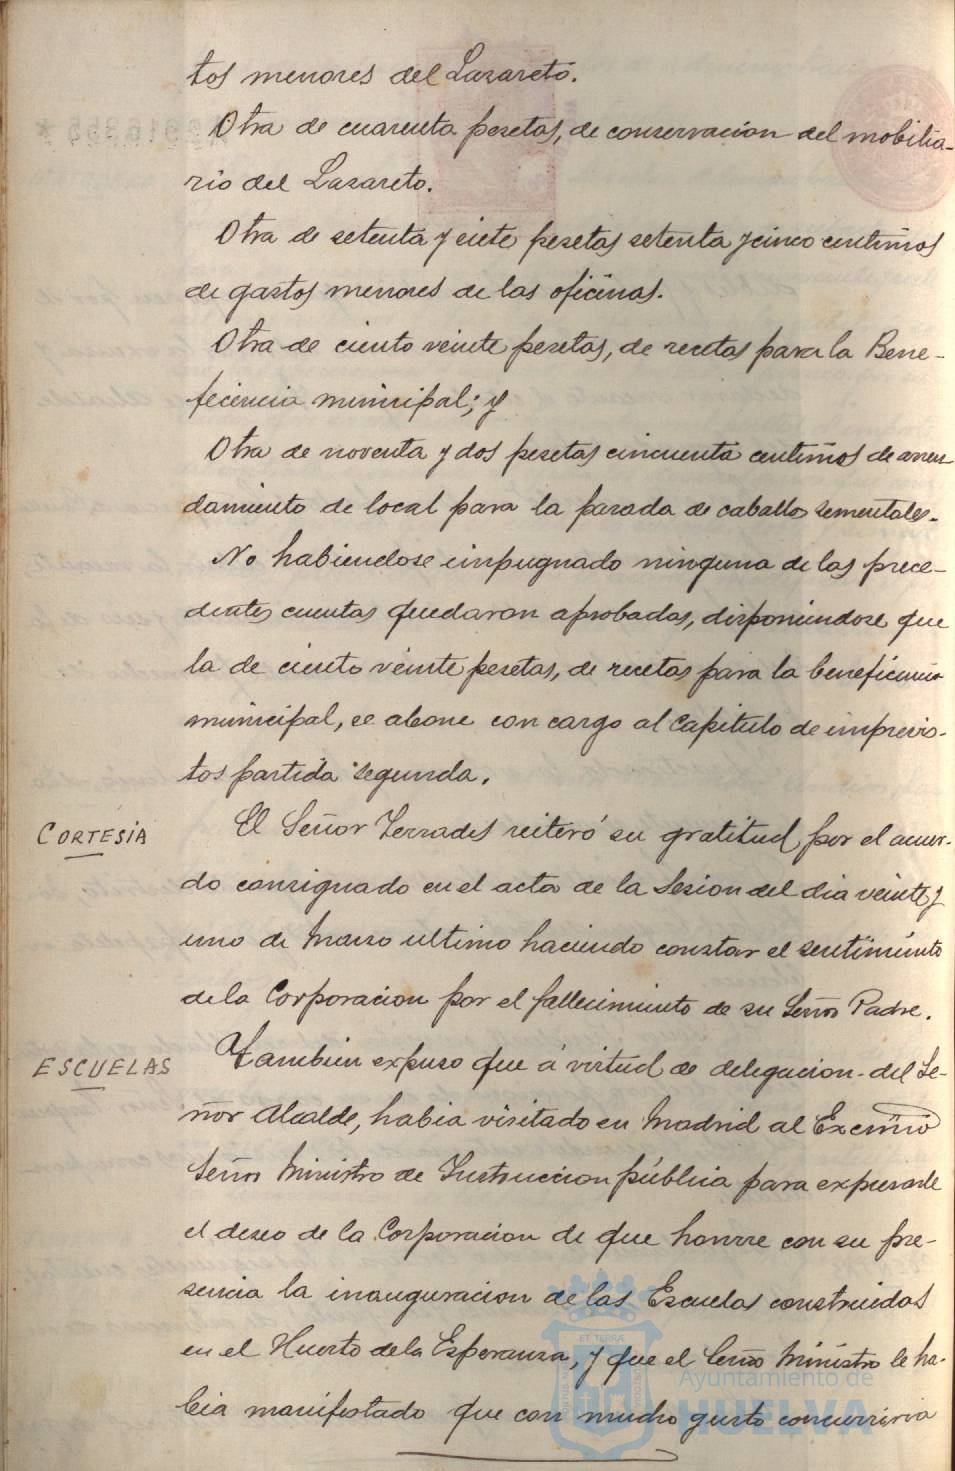 tos menores del Lazareto.
Otra de cuarenta pesetas, de conservacion del mobilia-
rio del Lazareto.
Otra de setenta y siete pesetas setenta y cinco centimos
de gastos menores de las oficinas.
Otra de ciento veinte pesetas, de recetas para la Bene-
ficencia municipal; y
Otra de noventa y dos pesetas cincuenta centimos de arren
damiento de local para la parada de caballos sementales.
No habiendose impugnado ninguna de las prece-
dentes cuentas quedaron aprobadas, disponiendose que
la de ciento veinte pesetas, de recetas para la beneficencia
municipal, se abone con cargo al Capitulo de imprevis-
tos partida segunda.
CORTESIA
El Señor Terrades reiteró su gratitud por el acuer-
do consignado en el acta de la Sesion del dia veinte y
uno de Marzo ultimo haciendo constar el sentimiento
de la Corporacion por el fallecimiento de su Señor Padre.
ESCUELAS
Tambien expuso que á virtud de delegacion del Se-
ñor Alcalde, habia visitado en Madrid al Excmo
Señor Ministro de Instruccion pública para expresarle
el deseo de la Corporacion de que honrre con su pre-
sencia la inauguracion de las Escuelas construidas
en el Huerto de la Esperanza, y que el Señor Ministro le ha-
bia manifestado que con mucho gusto concurriria
Ayuntamiento de
HUELVA